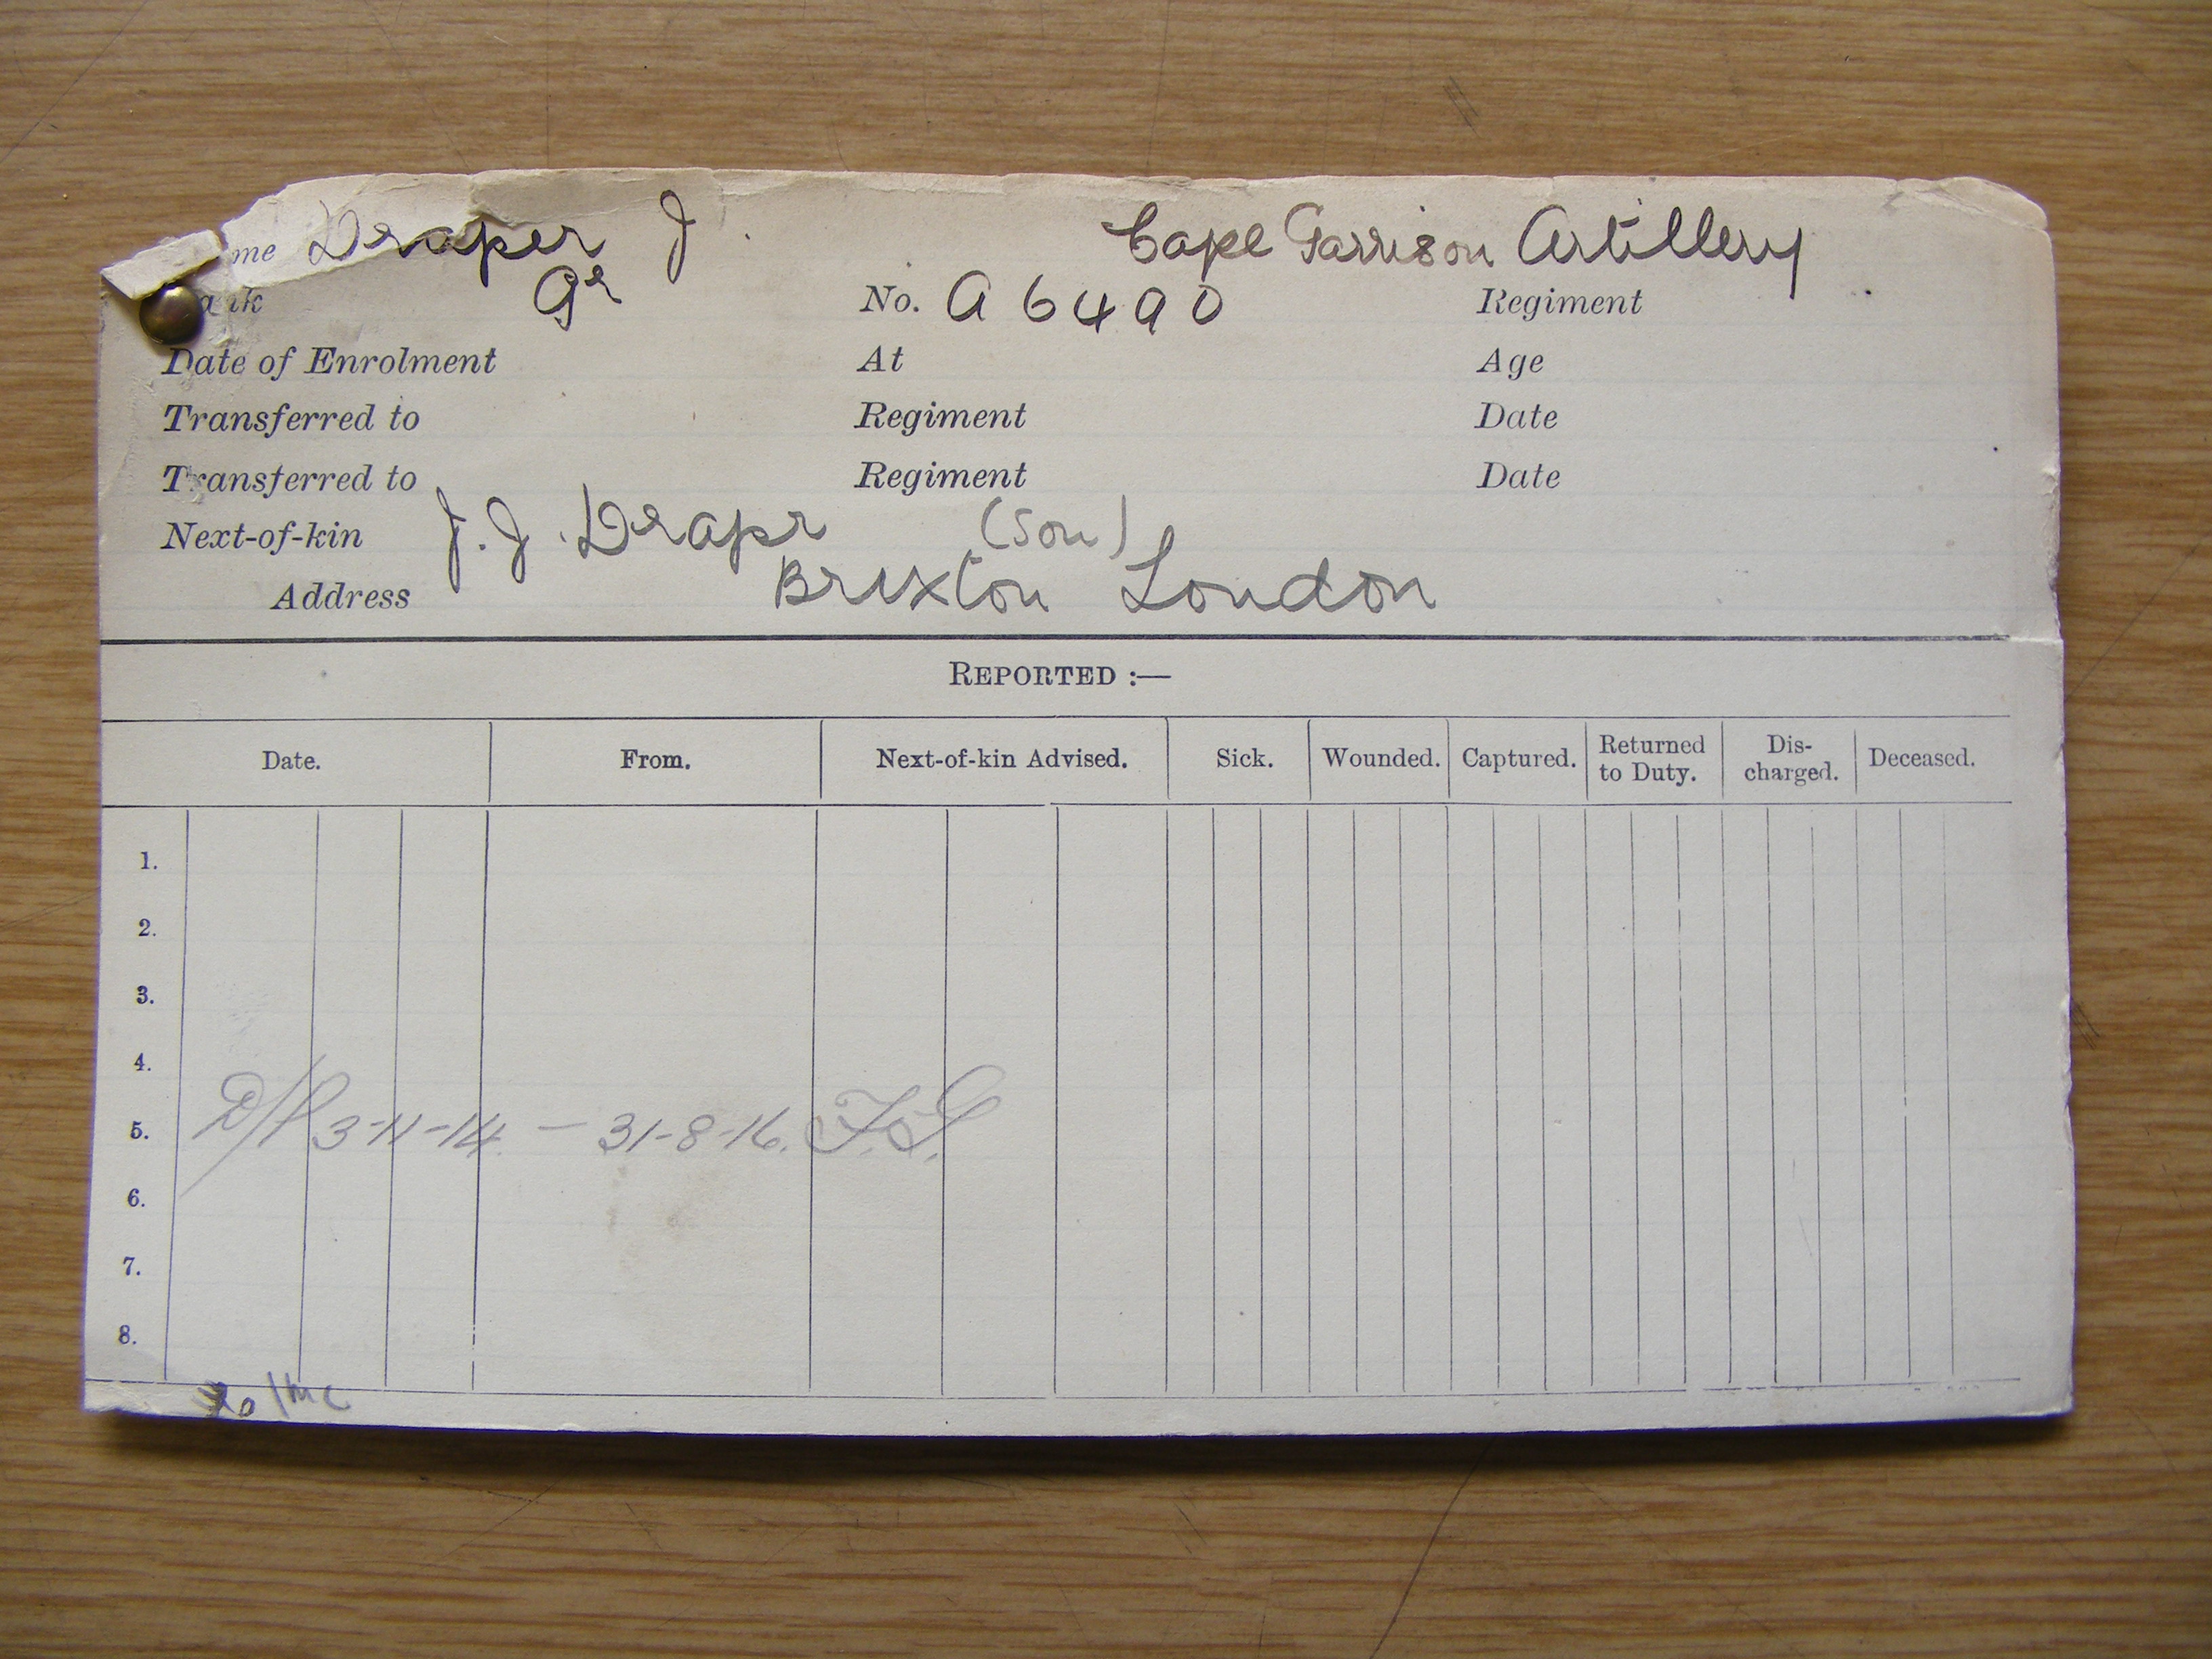 me Draper J. Cape Garrison Artillery
Gr No. A 6490 Regiment
Date of Enrolment At Age
Transferred to Regiment Date
Transferred to Regiment Date
Next-of-kin J. J. Drapr (Son)
Address Brixton London
REPORTED :—
Date. From. Next-of-kin Advised. Sick. Wounded. Captured. Returned to Duty. Dis-charged. Deceased.
1.
2.
3.
4.
5. D/P 3-11-14. — 31-8-16.
6.
7.
8.